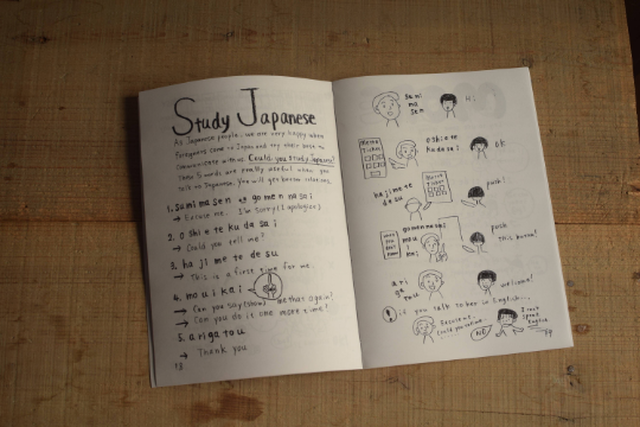 Study Japanese
As Japanese people, we are very happy when
foreigners come to Japan and try their best to
communicate with us. Could you study Japanese?
These 5 words are really useful when you
talk to Japanese. You will get better relations.
1. su mi ma sen go men na sa i
→ Excuse me. I'm sorry (I apologize)
2. o shi e te ku da sa i
→ Could you tell me?
3. ha ji me te de su
→ This is a first time for me.
4. mo u i kai
→ Can you say (show) me that again?
→ Can you do it one more time?
5. a ri ga tou
→ Thank you
13
su mi
ma
sen
Hi
o shi e te
ku da sa i
OK
ha ji me te
de su
push!
go men na sa i
mo u
i
push
this button!
a ri
ga
tou
welcome!
! if you talk to her in English...
Excuse me.
NO
I can't
speak
English